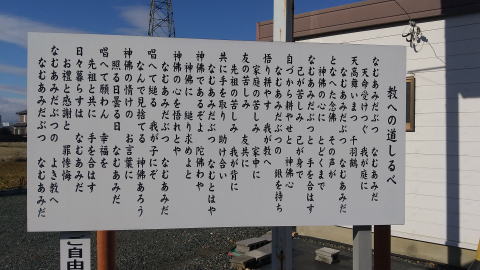 教への道しるべ
なむあみだぶつ　なむあみだ
天命を受けつぐ　我が庭に
天高舞いまつ　千羽鶴
なむあみだぶつ　なむあみだ
となへた念佛　その声が
神佛の心に　とどくまで
なむあみだぶつと　手を合はす
己が苦しみ　己が身で
自づから耕やせと　神佛心
なむあみだぶつの　鍬を持ち
悟り耕す　我が教へ
家庭の苦しみ　家中に
友の苦しみ　友共に
先祖の苦しみ　我が背に
共に手を取り　助け合い
なむあみだぶつ　なむとはや
神佛であるぞよ　陀佛わや
神佛に　縋り求めよと
神佛の心を　悟れとや
なむあみだぶつ　なむあみだ
唱へて縋る　我が子にぞ
なんで見捨てる　神佛あろう
神佛の情けの　お言葉に
照る日曇る日　なむあみだ
唱へて願わん　幸福を
先祖と共に　手を合はす
日々暮らすは　なむあみだ
お禮と感謝と　罪悔悔
なむあみだぶつの　よき教へ
なむあみだぶつ　なむあみだ
ご自由